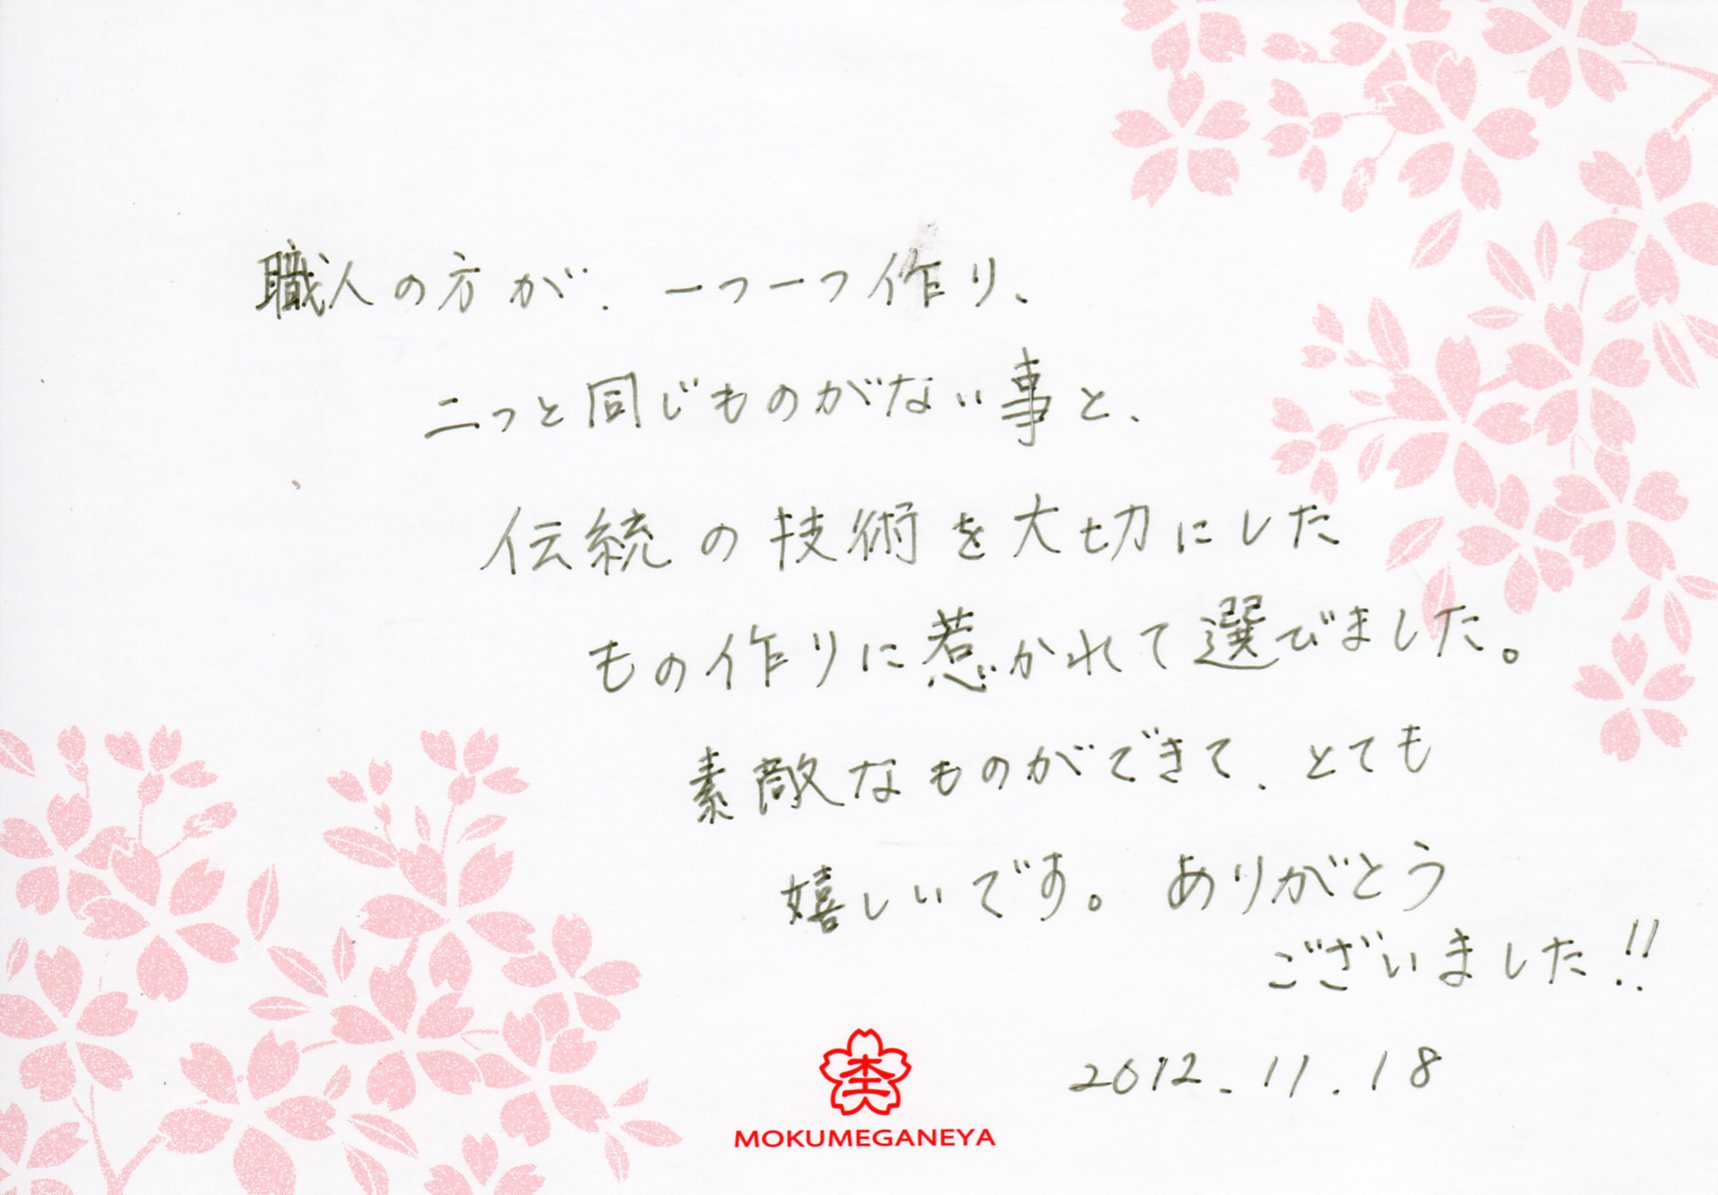 職人の方が、一つ一つ作り、
二つと同じものがない事と、
伝統の技術を大切にした
もの作りに惹かれて選びました。
素敵なものができて、とても
嬉しいです。ありがとう
ございました!!
2012.11.18
杢
MOKUMEGANEYA